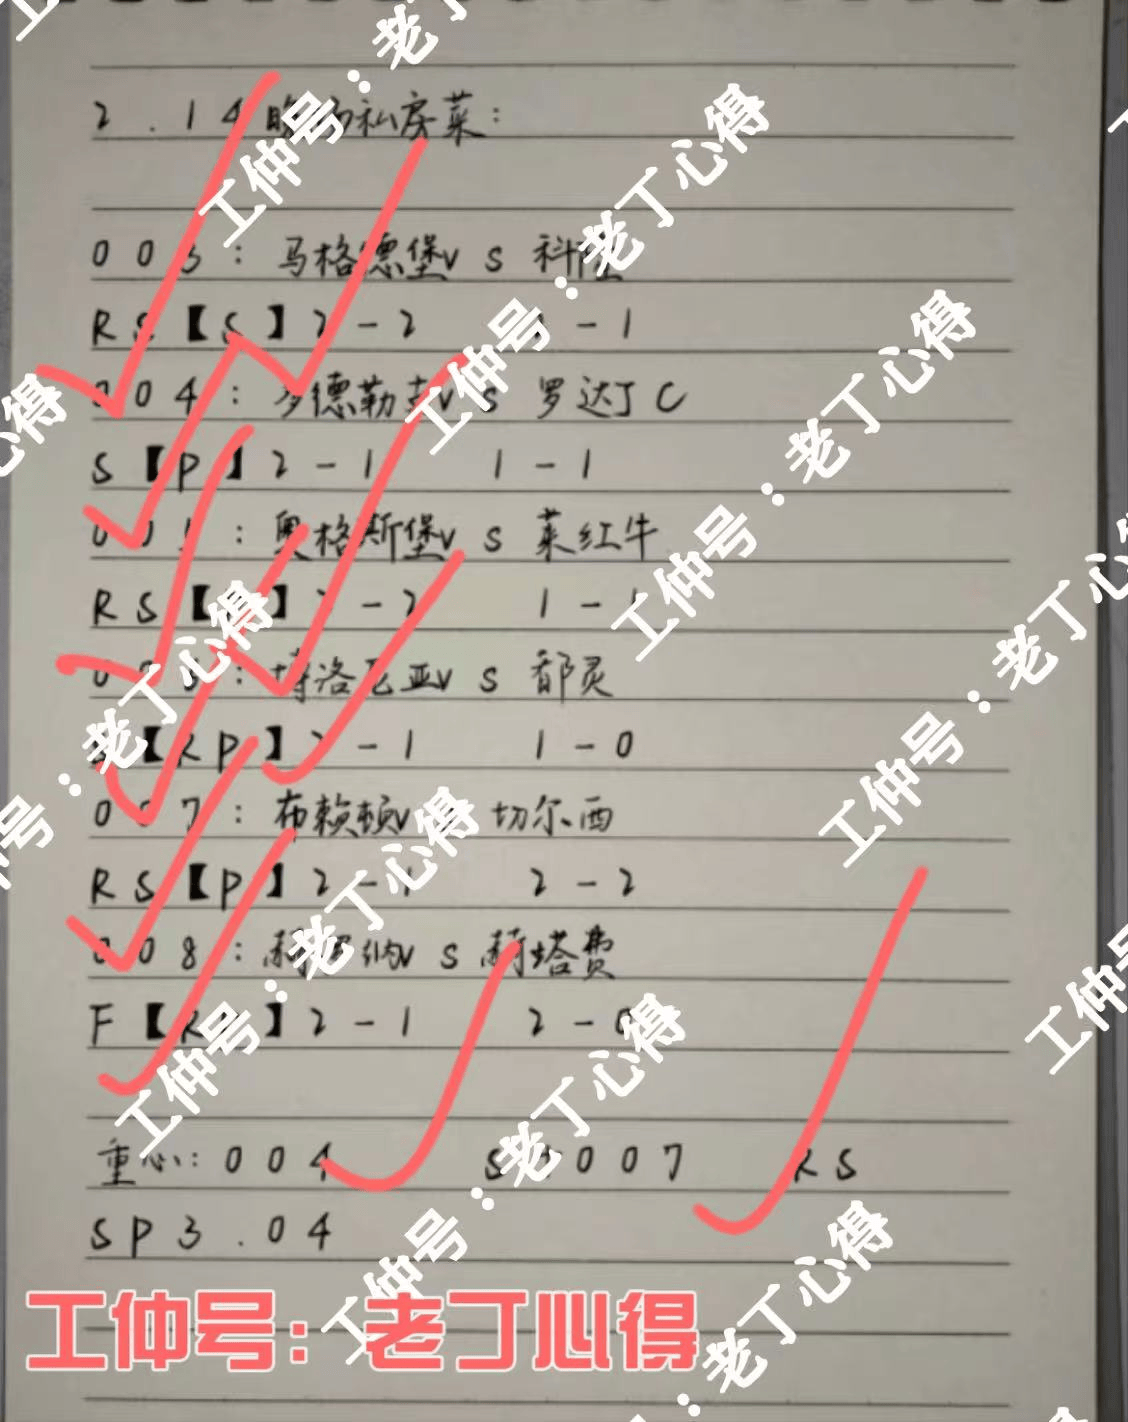 2.14晚场私房菜：
003：马格德堡vs科隆
RS【S】2-2 1-1
004：多德勒支vs罗达JC
S【P】2-1 1-1
005：奥格斯堡vs莱红牛
RS 2-2 1-1
：博洛尼亚vs都灵
【RP】2-1 1-0
007：布赖顿v 切尔西
RS【P】2-1 2-2
008：赫罗纳vs赫塔费
F 2-1 2-0
重心：004 S 007 RS
SP3.04
工仲号：老丁心得
工仲号：老丁心得